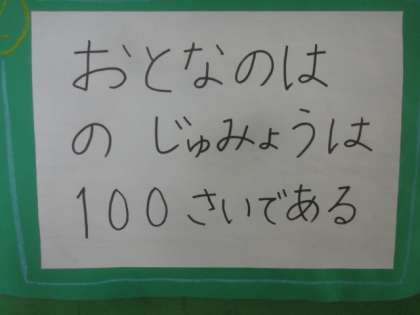 おとなのは
の じゅみょうは
100さいである